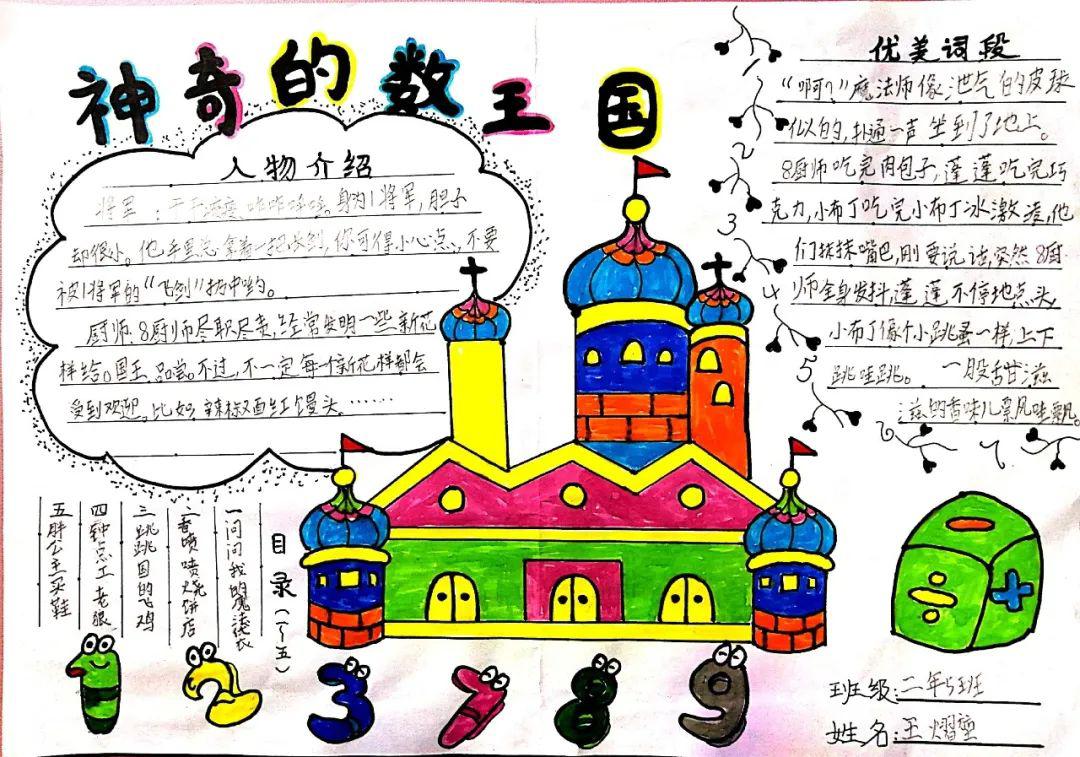 神奇的数王国
人物介绍
将军:干干凌凌,咋咋呼呼。身为1将军,胆子
却很小。他手里总拿着一把收剑,你可得小心点,不要
被1将军的“飞剑”打中哟。
厨师:8厨师尽职尽责,经常发明一些新花
样给0国王品尝。不过,不一定每个新花样都会
受到欢迎,比如,辣椒面红馒头……
优美词段
“啊?”魔法师像泄气的皮球
似的,扑通一声坐到了地上。
8厨师吃完肉包子,蓬蓬吃完巧
克力,小布丁吃完小布丁冰激凌,他
们抹抹嘴巴,刚要说话,突然8厨
师全身发抖,蓬蓬不停地点头,
小布丁像个小跳蚤一样,上下
跳哇跳。一股甜滋
滋的香味儿飘哇飘。
1
2
3
4
5
6
7
目录(一~五)
一问问我的魔法衣
二香喷喷烧饼店
三跳跳国的飞鸡
四钟点工老狼
五胖公主买鞋
1 2 3 7 8 9
- ÷ +
班级:二年5班
姓名:王熠堃